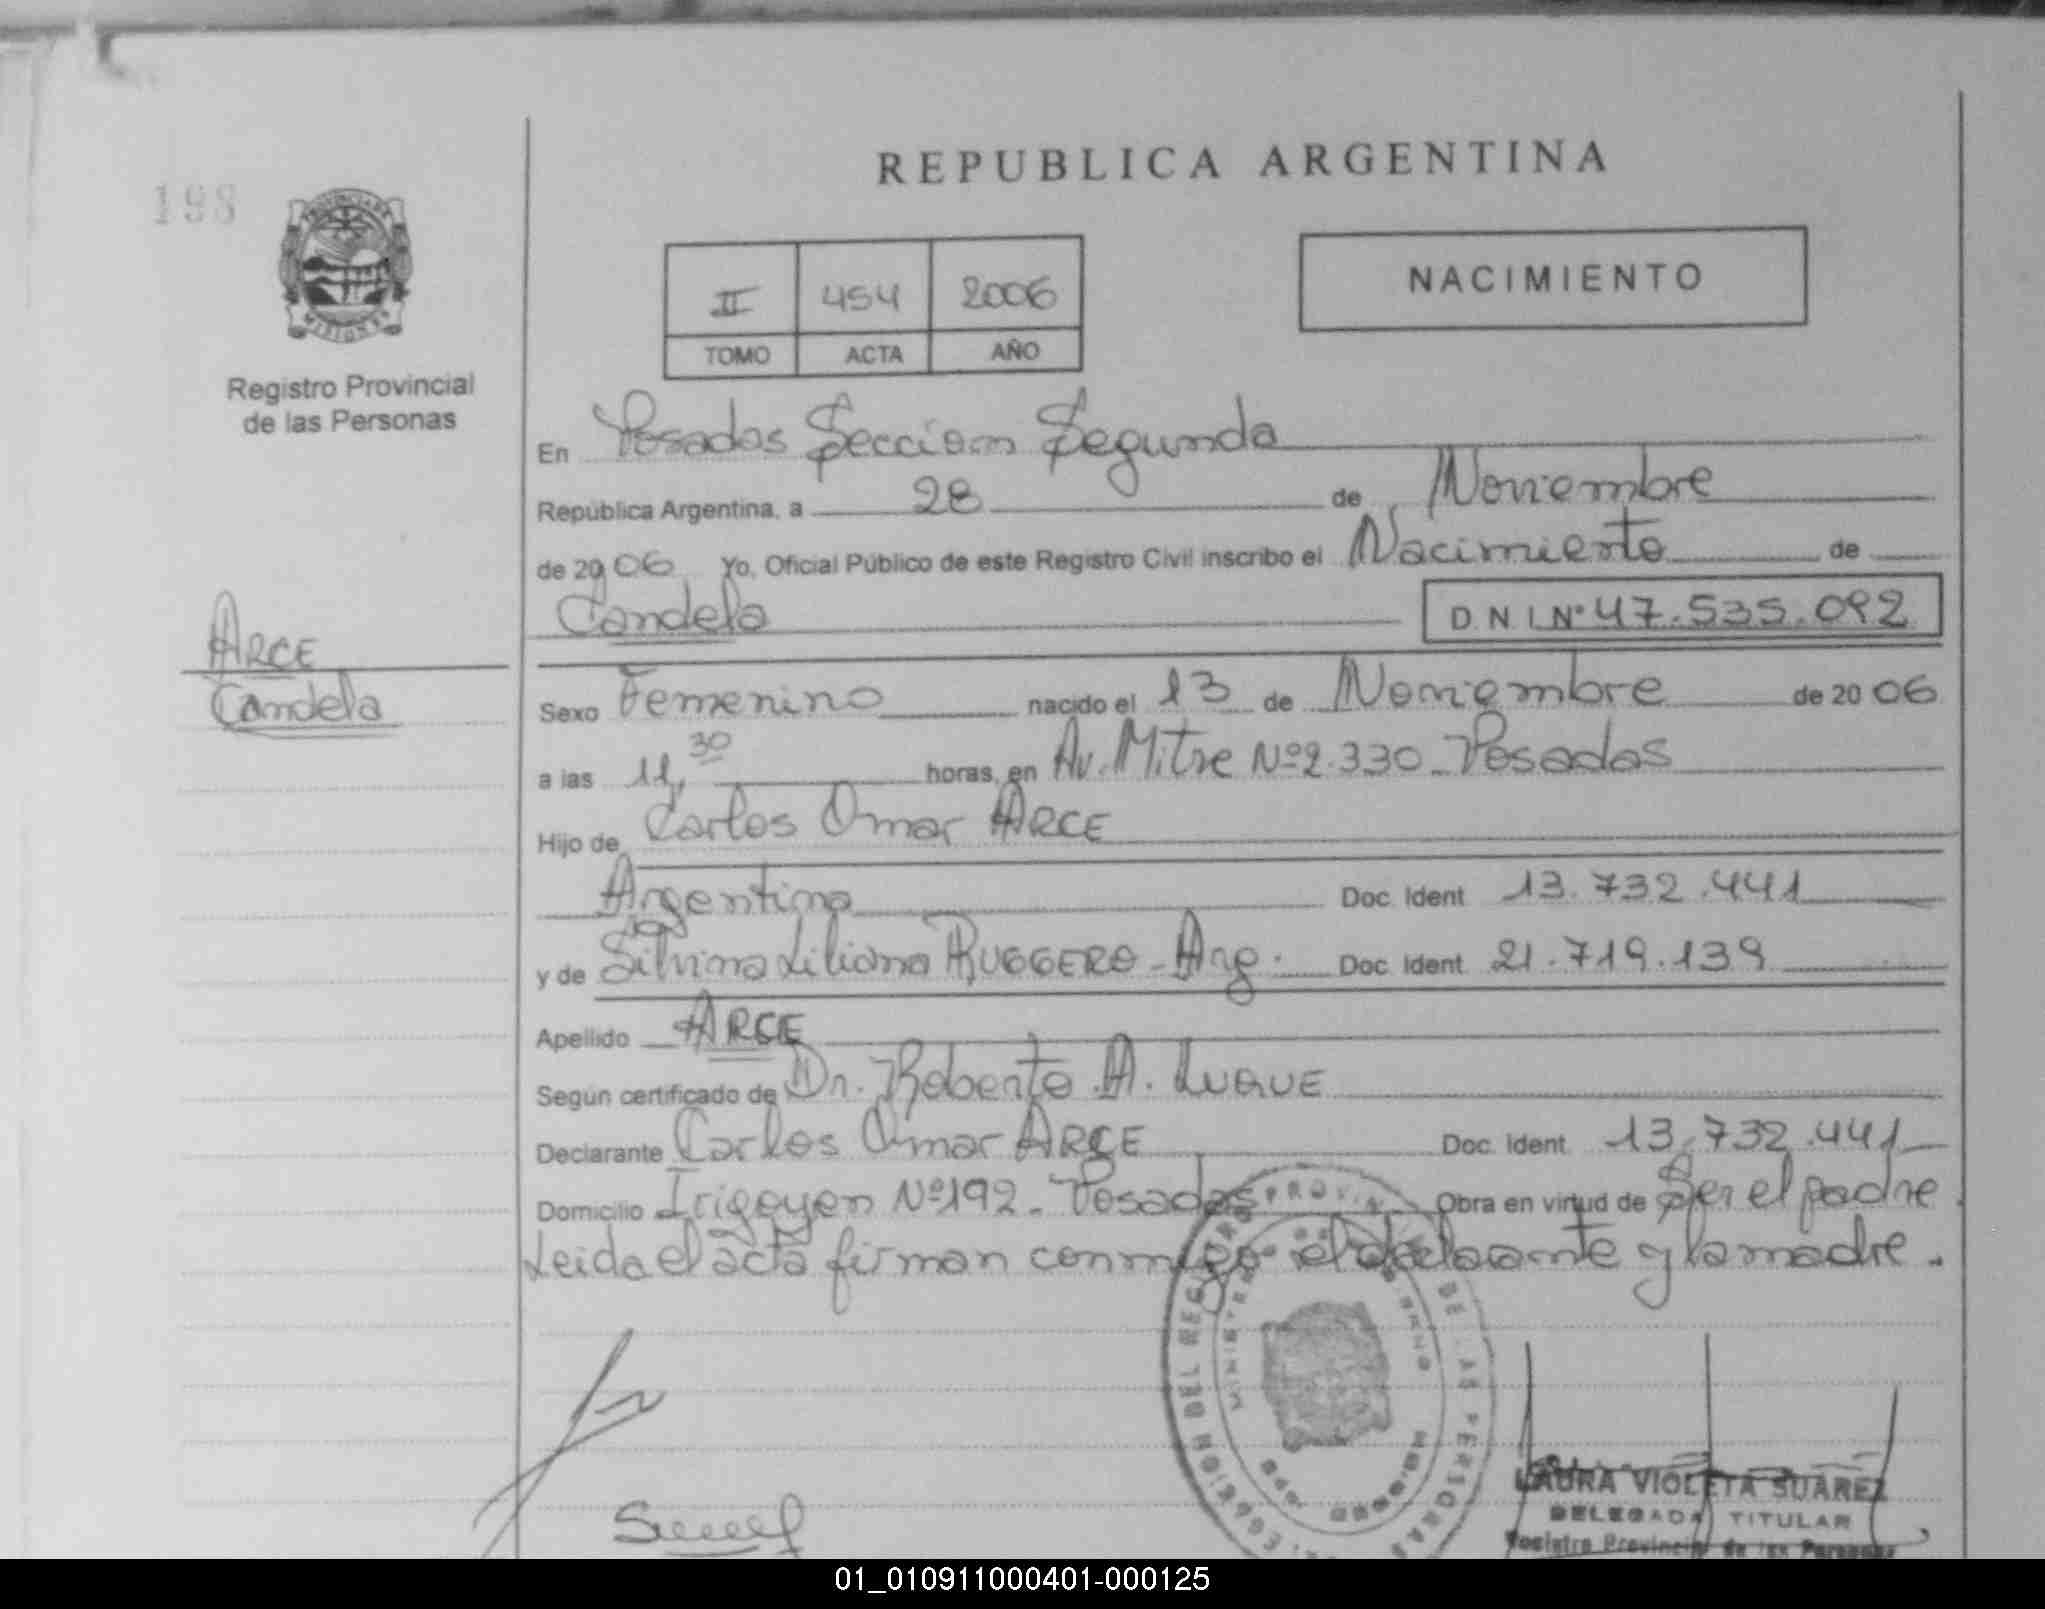 REPUBLICA ARGENTINA
198
PROVINCIA DE
MISIONES
Registro Provincial
de las Personas
II 454 2006
TOMO ACTA AÑO
NACIMIENTO
En Posadas Sección Segunda
República Argentina, a 28 de Noviembre
de 2006 Yo, Oficial Público de este Registro Civil inscribo el Nacimiento de
Candela D.N.I.Nº 47.535.092
ARCE
Candela
Sexo Femenino nacido el 13 de Noviembre de 2006
a las 11,30 horas, en Av. Mitre Nº 2.330 - Posadas
Hijo de Carlos Omar ARCE
Argentino Doc. Ident. 13.732.441
y de Silvina Liliana RUGGERO - Arg. Doc. Ident. 21.719.139
Apellido ARCE
Según certificado de Dr. Roberto A. LUQUE
Declarante Carlos Omar ARCE Doc. Ident. 13.732.441
Domicilio Irigoyen Nº 192 - Posadas Obra en virtud de Ser el padre.
Leida el acta firman conmigo el declarante y la madre.
LAURA VIOLETA SUAREZ
DELEGADA TITULAR
Registro Provincial de las Personas
01_010911000401-000125